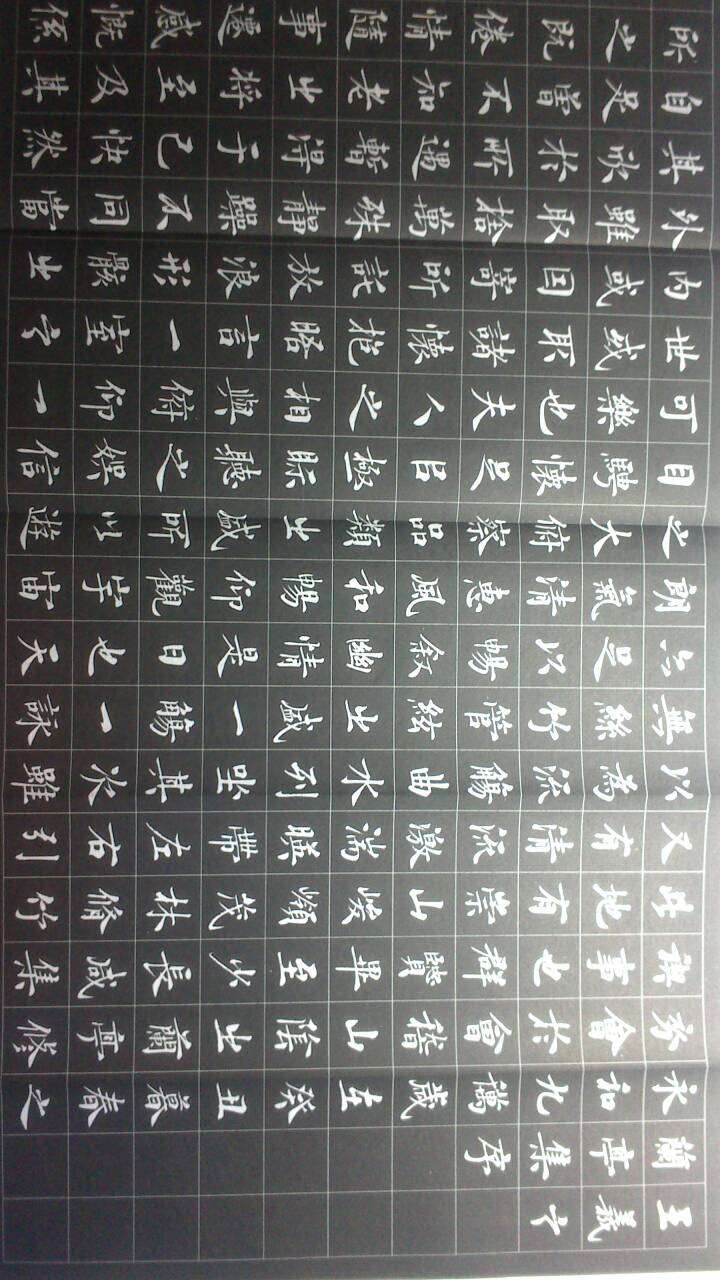 王羲之
蘭亭集序
永和九年歲在癸丑暮春之
初會於會稽山陰之蘭亭脩
禊事也群賢畢至少長咸集
此地有崇山峻嶺茂林脩竹
又有清流激湍暎帶左右引
以為流觴曲水列坐其次雖
無絲竹管絃之盛一觴一詠
亦足以暢敘幽情是日也天
朗氣清惠風和暢仰觀宇宙
之大俯察品類之盛所以遊
目騁懷足以極視聽之娛信
可樂也夫人之相與俯仰一
世或取諸懷抱晤言一室之
內或因寄所託放浪形骸之
外雖取捨萬殊靜躁不同當
其欣於所遇暫得於己快然
自足曾不知老之將至及其
所之既倦情隨事遷感慨係